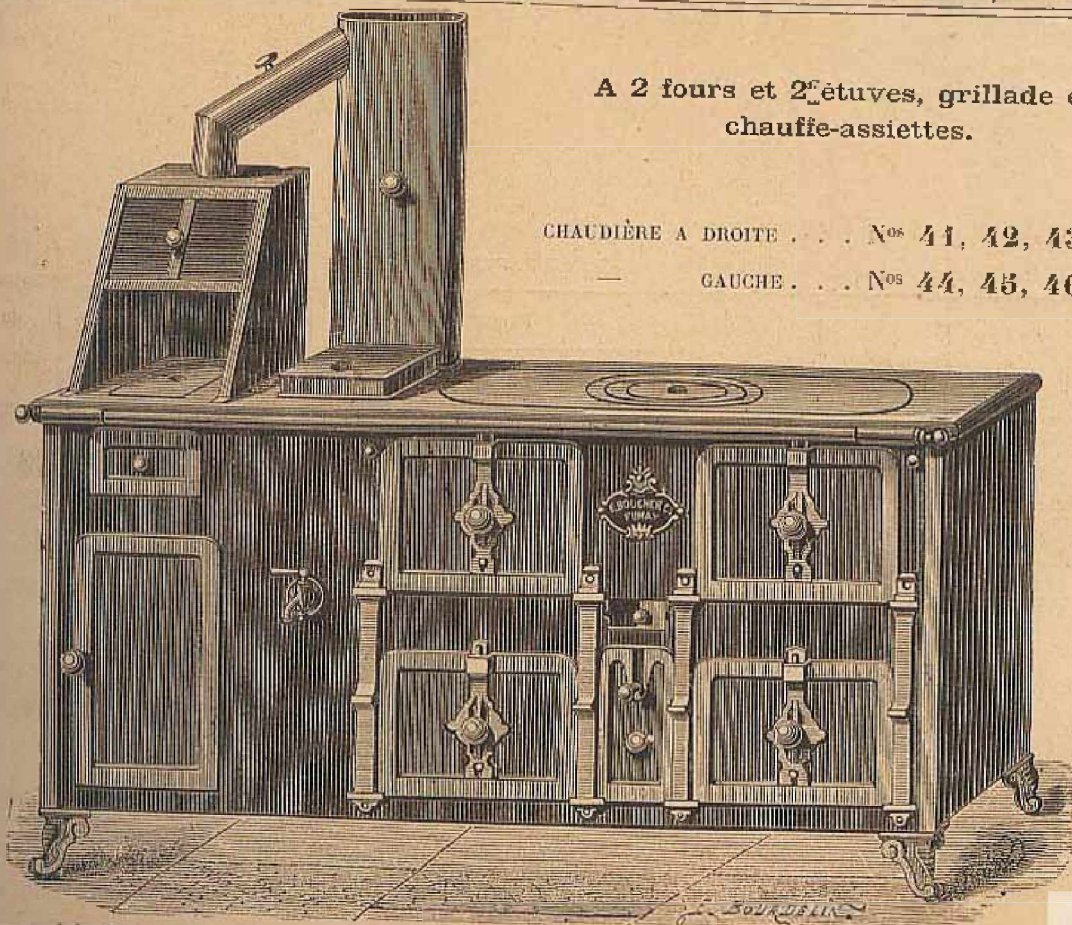 A 2 fours et 2 étuves, grillade e
chauffe-assiettes.
CHAUDIÈRE A DROITE . . . Nos 41, 42, 43
— GAUCHE . . . Nos 44, 45, 46
E. BOUCHER
FUMAY
BOURDELIN